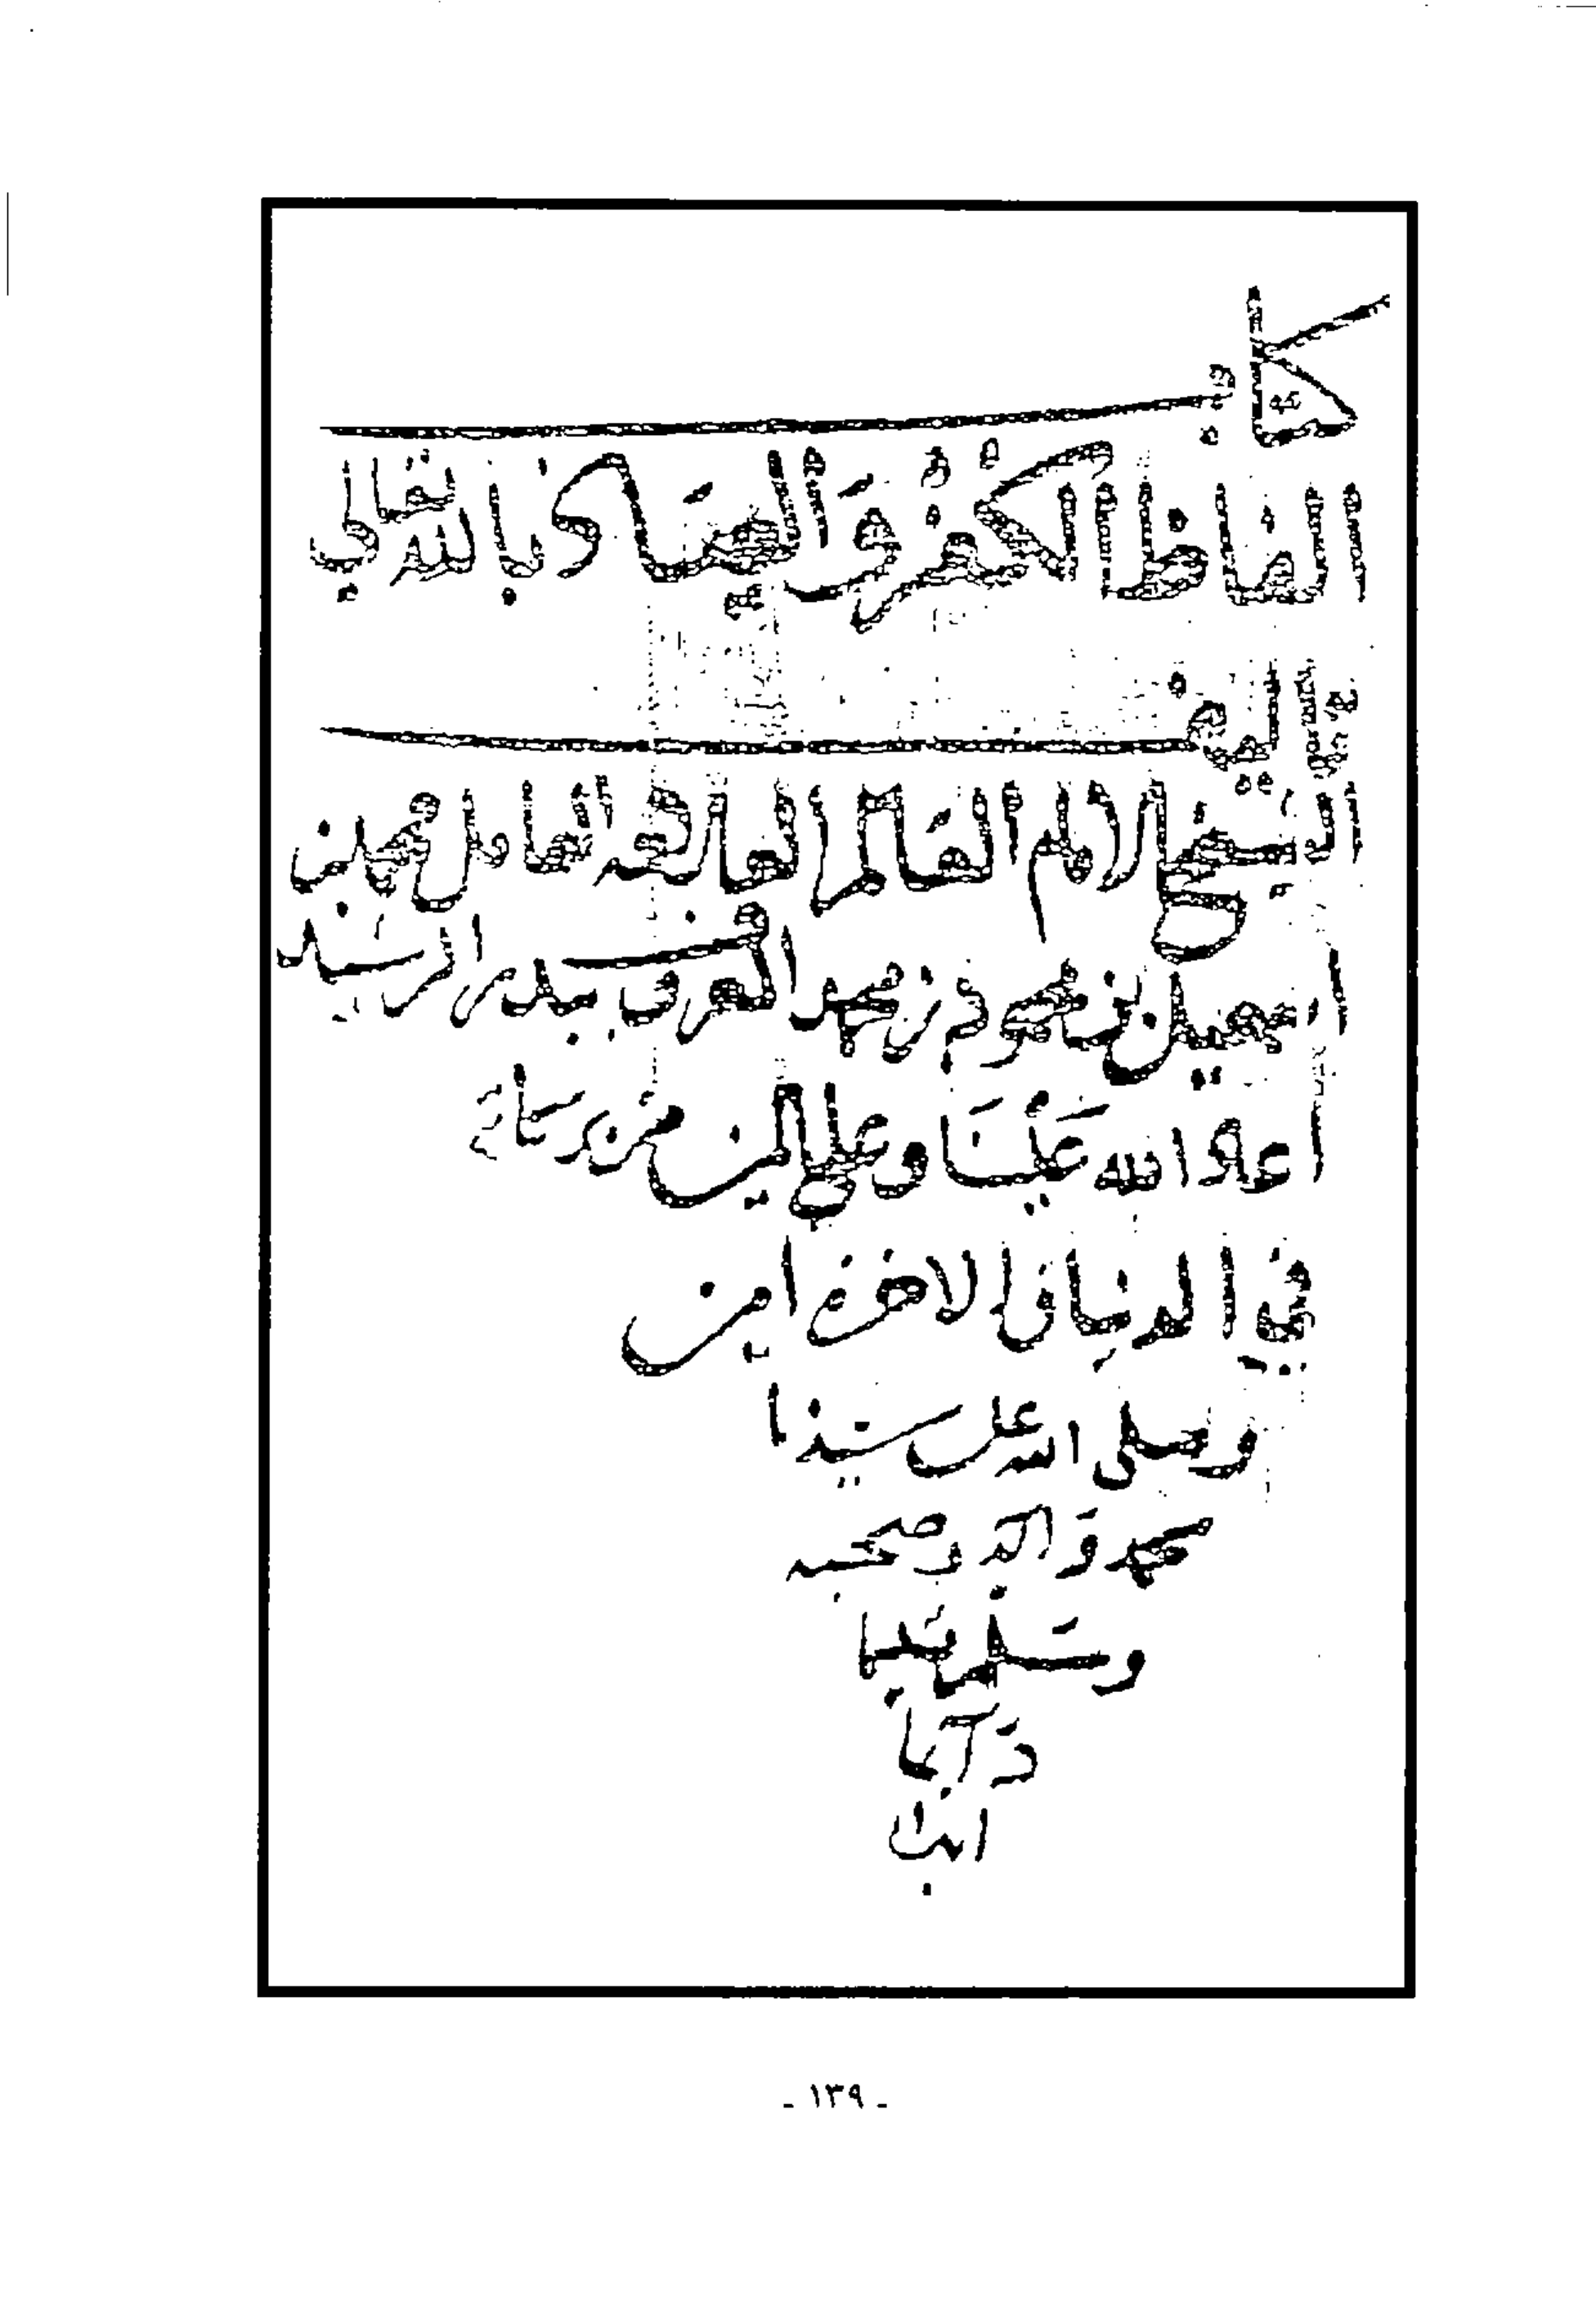 كتاب
الفاظ الكفر والعياذ بالله تعالى
تاليف
الشيخ الامام العالم العارفه العامل محمد بن
اسمعيل بن محمود بن محمد المعروف ببدر الرشيد
اعاد الله علينا وعلى المسلمين من بركاته
في الدنيا والاخرة امين
وصلى الله على سيدنا
محمد وآله وصحبه
وسلم تسليما
دآيما
ابدا
- ١٣٩ -